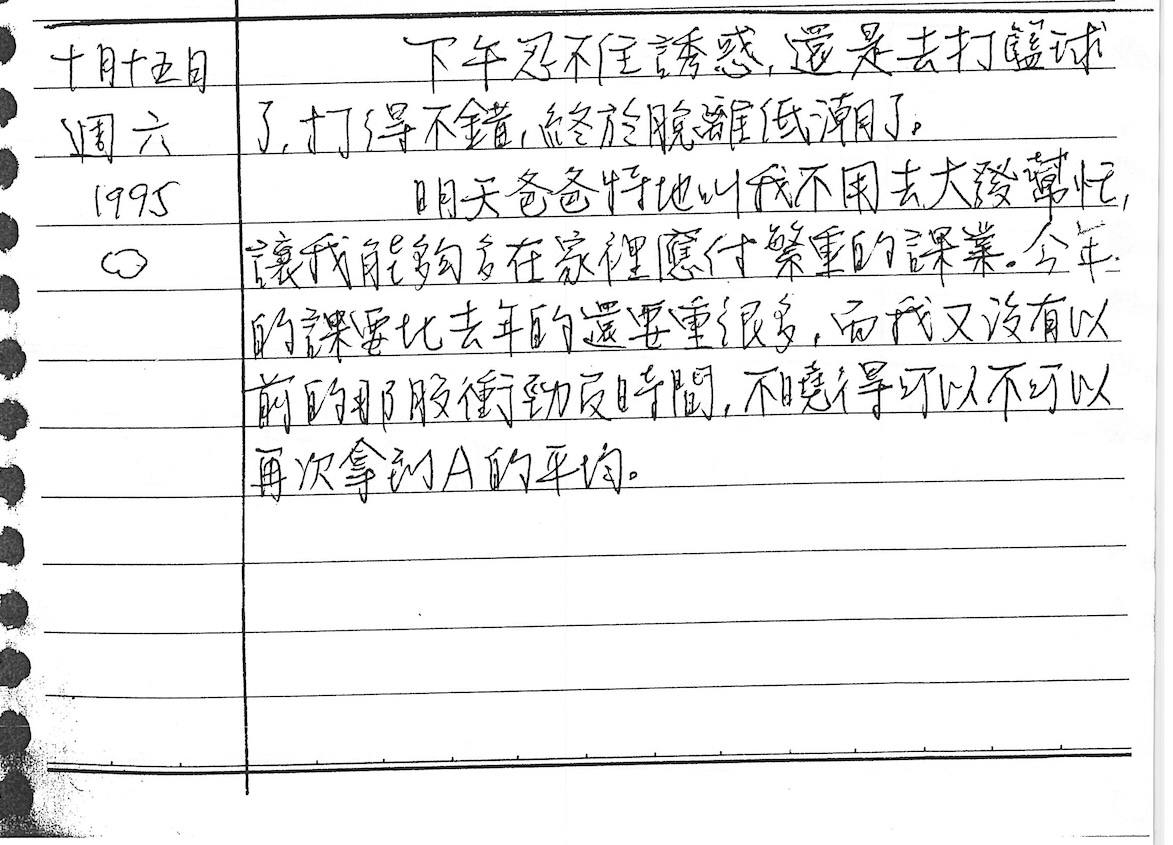 十月十五日
週六
1995
下午忍不住誘惑,還是去打籃球
了,打得不錯,終於脫離低潮了。
明天爸爸特地叫我不用去大發幫忙,
讓我能夠多在家裡應付繁重的課業.今年
的課要比去年的還要重很多,而我又沒有以
前的那股衝勁及時間,不曉得可以不可以
再次拿到A的平均。